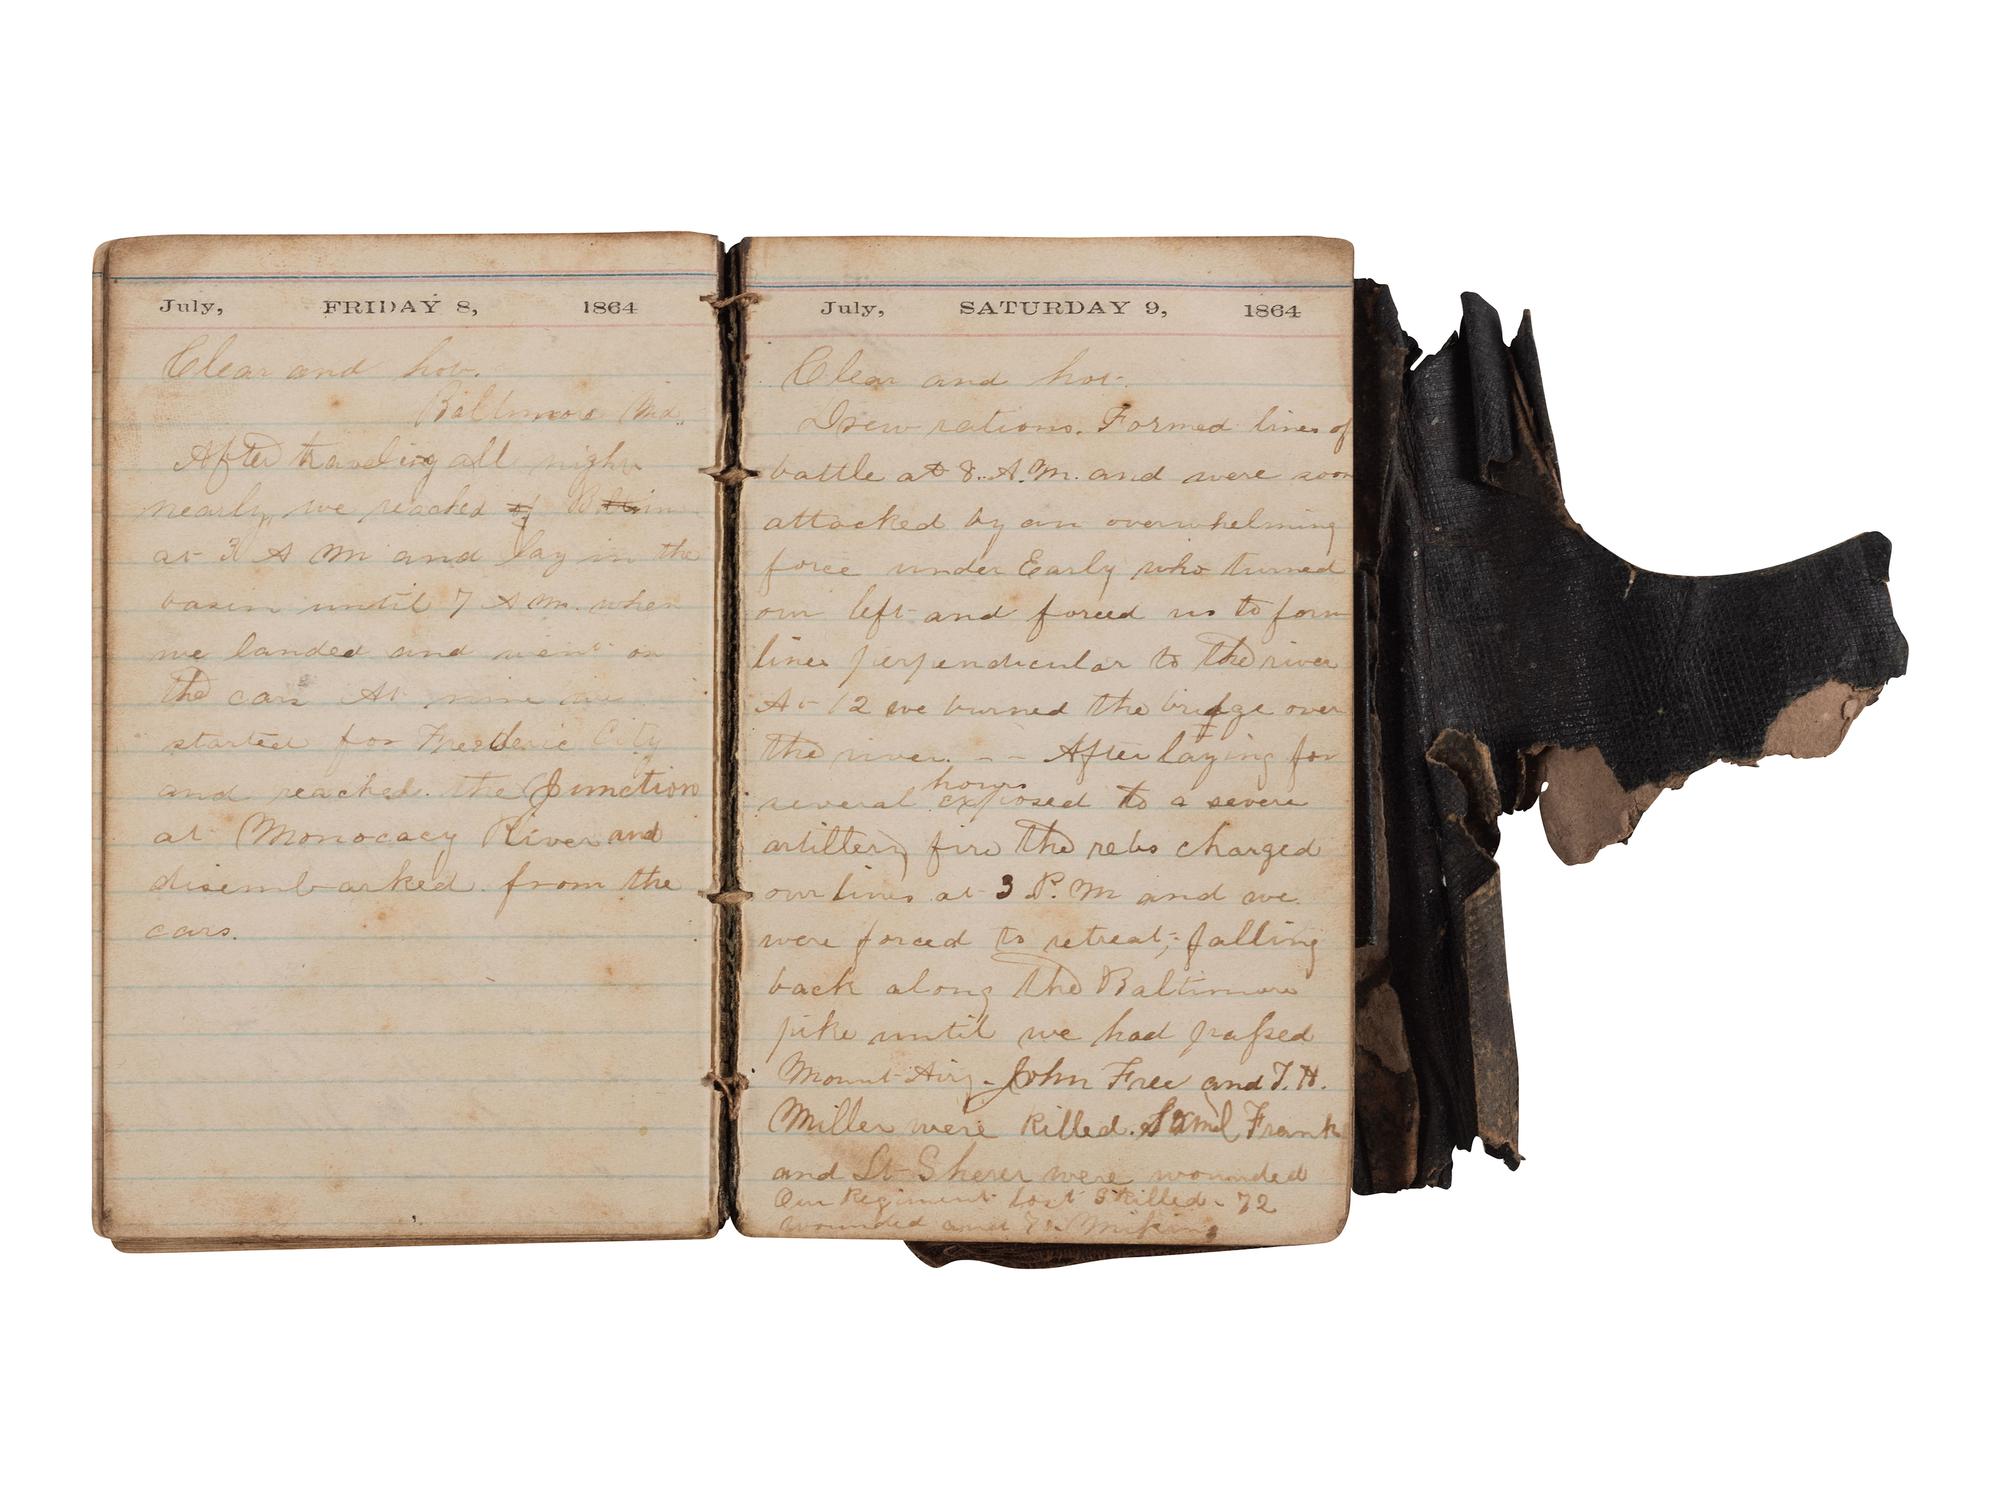 July, FRIDAY 8, 1864
Clear and hot.
Baltimore Md.
After traveling all night
nearly, we reached of Baltim
at 3 A M and lay in the
basin until 7 A M. when
we landed and went on
the cars At nine we
started for Frederic City
and reached the Junction
at Monocacy River and
disembarked from the
cars.
July, SATURDAY 9, 1864
Clear and hot.
Drew rations. Formed lines of
battle at 8. A.M. and were soon
attacked by an overwhelming
force under Early who turned
our left and forced us to form
lines perpendicular to the river
At 12 we burned the bridge over
the river. - - After laying for
several hours exposed to a severe
artillery fire the rebs charged
our lines at 3 P.M and we
were forced to retreat, falling
back along the Baltimore
pike until we had passed
Mount Airy - John Free and T. H.
Miller were killed. Saml Frank
and Lt Sherer were wounded
Our Regiment lost killed - 72
wounded and missing